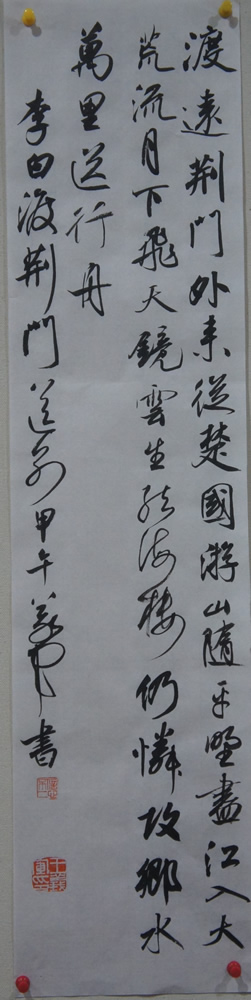 渡遠荆門外来從楚國游山隨平野盡江入大
荒流月下飛天鏡雲生結海樓仍憐故鄉水
萬里送行舟
李白渡荆門送別甲午書